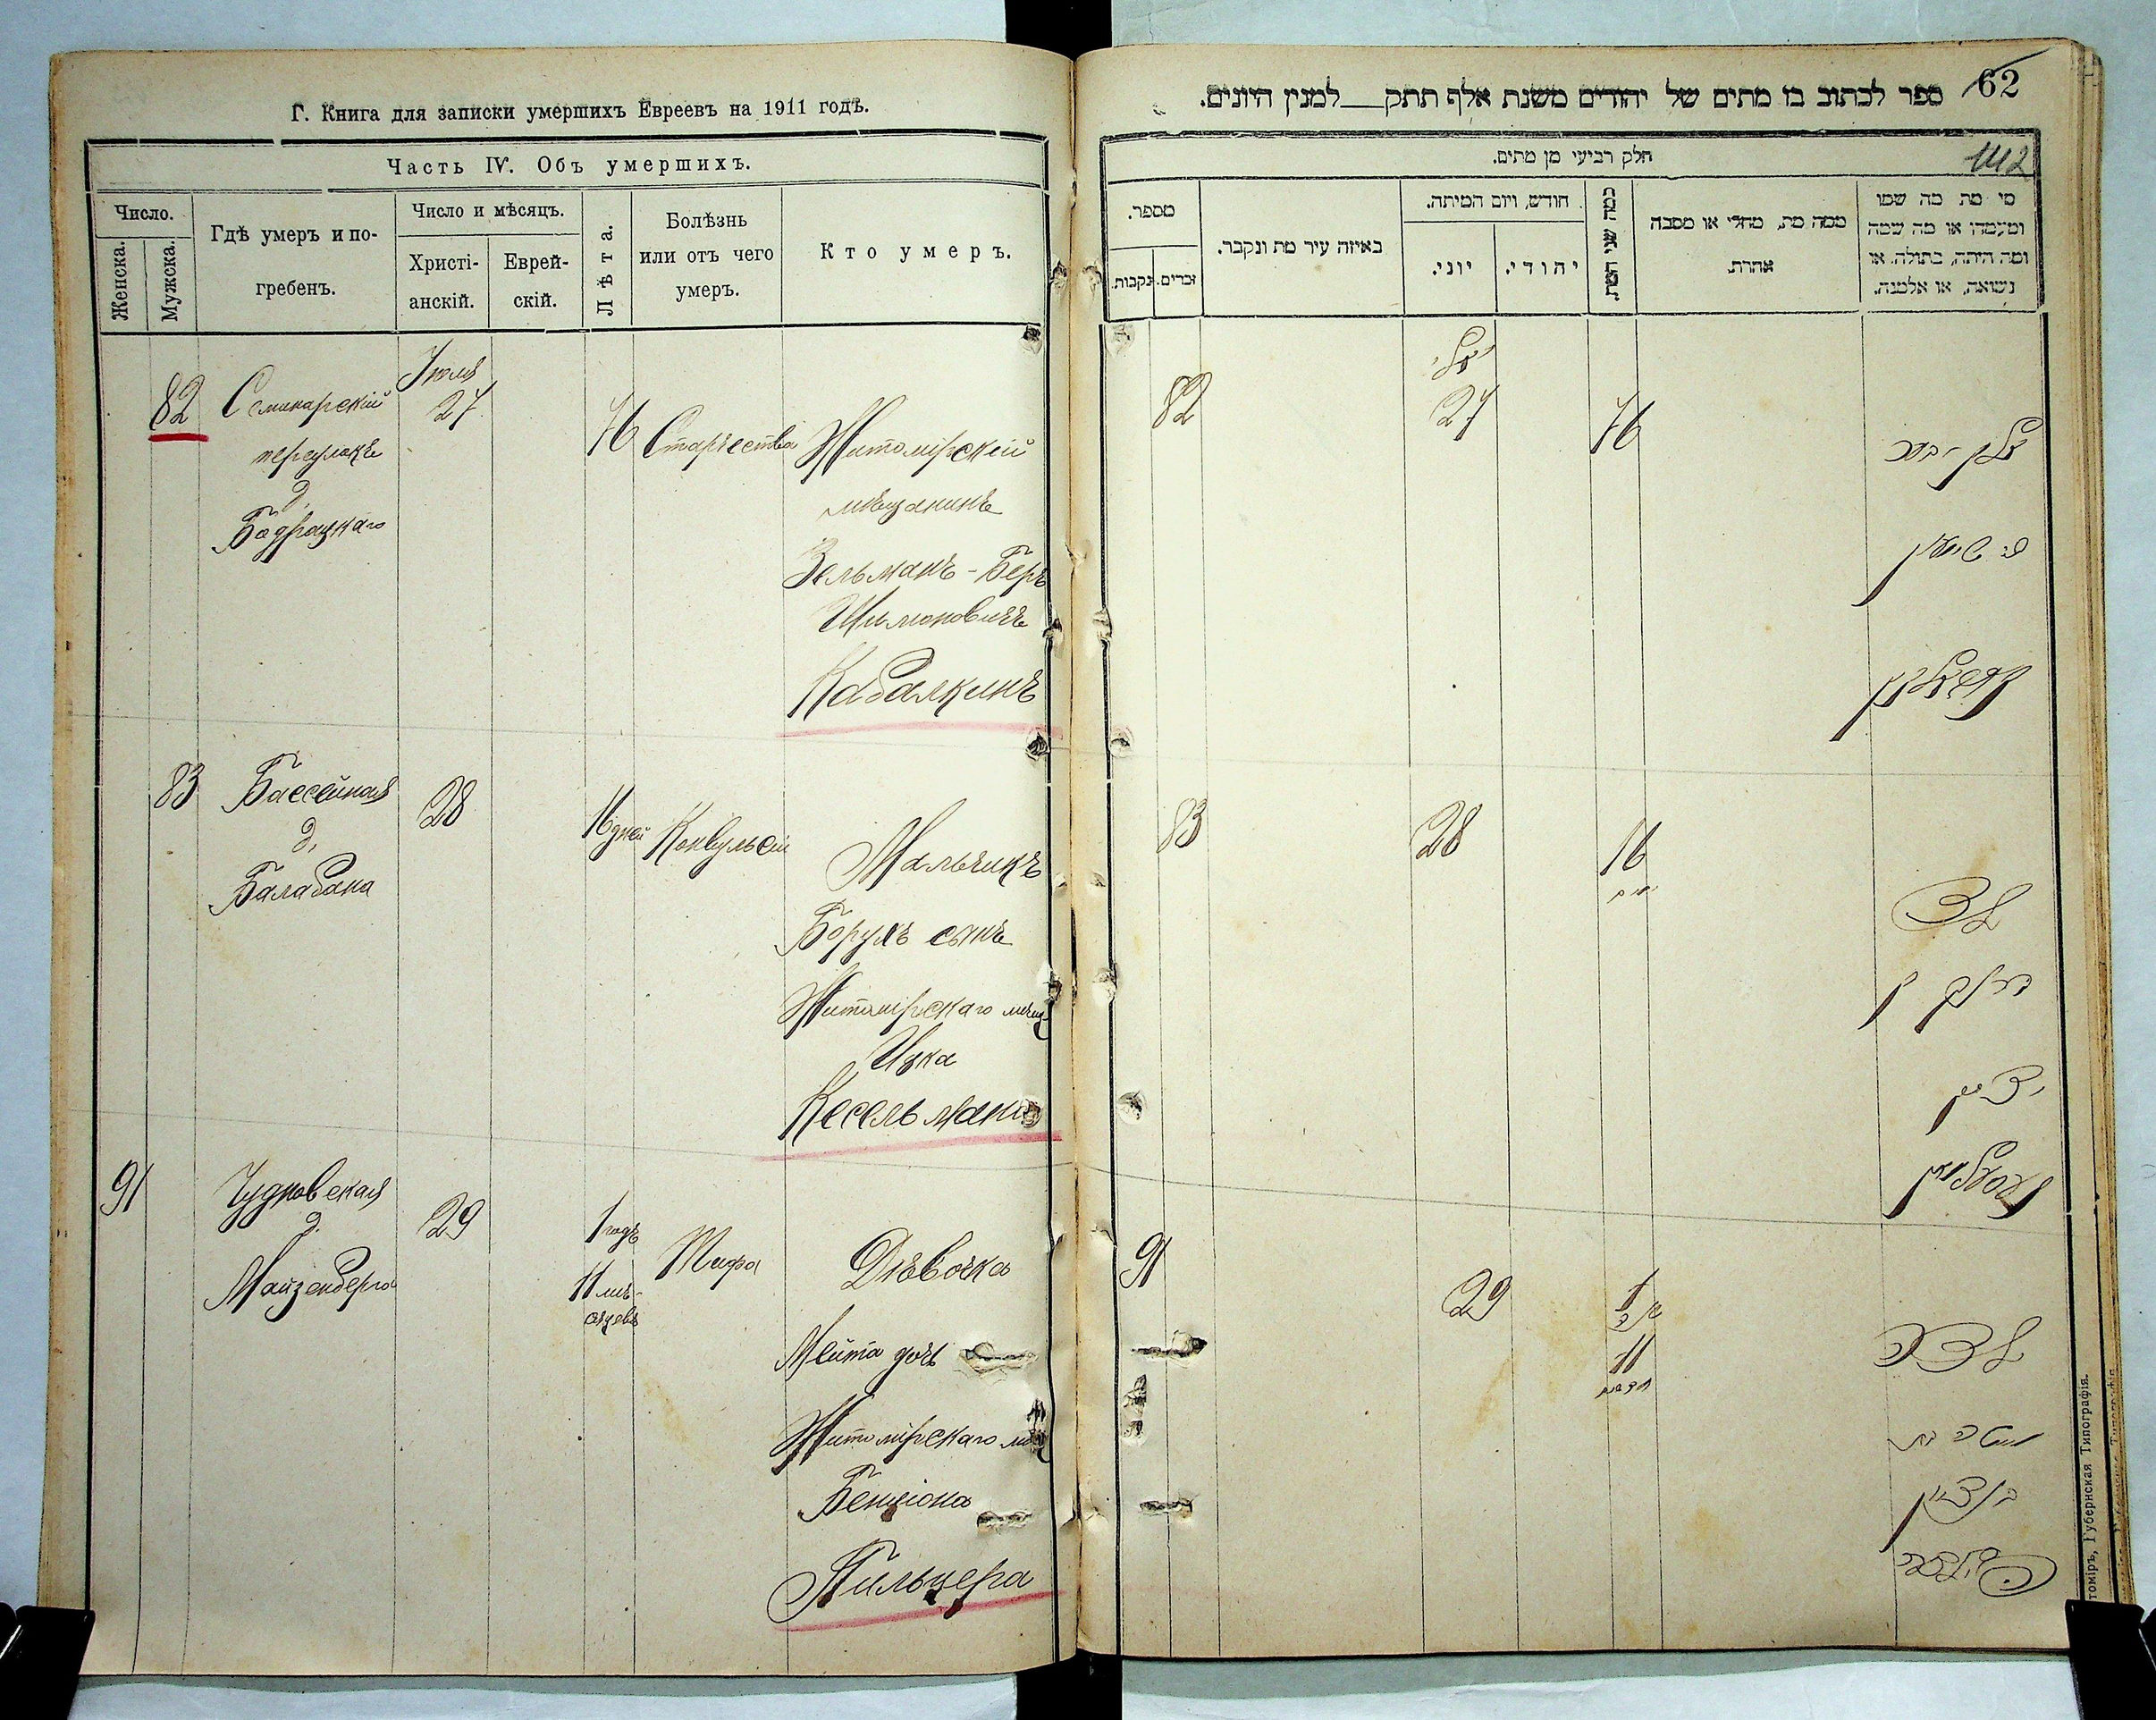 Г. Книга для записки умершихъ Евреевъ на 1911 годъ.
Часть IV. Объ умершихъ.
Число.
Женска.
Мужска.
Гдѣ умеръ и по-
гребенъ.
Число и мѣсяцъ.
Христі-
анскій.
Еврей-
скій.
Лѣта.
Болѣзнь
или отъ чего
умеръ.
Кто умеръ.
82
Семинарскій
переулокъ
д.
Бодрацкаго
Іюля
27
76
Старчества
Житомірскій
мѣщанинъ
Зельманъ-Беръ
Шимоновичъ
Кабалкинъ
83
Бассейная
д.
Балабана
28
16 дней
Конвульсій
Мальчикъ
Борухъ сынъ
Житомірскаго мѣщ.
Ицка
Кесельмана
91
Чудновская
д.
Майзенберга
29
1 годъ
11 мѣ-
сяцевъ
Тифа
Дѣвочка
Мейта дочь
Житомірскаго
Бенціона
Пильцера
ספר לכתוב בו מתים של יהודים משנת אלף תתק__למנין היונים.
62
חלק רביעי מן מתים.
112
מספר.
נקבות.
זכרים.
באיזה עיר מת ונקבר.
חודש, ויום המיתה.
יוני.
יהודי.
כמה שני המת.
ממה מת, מחלי או מסבה
אחרת.
מי מת מה שמו
ומעמדו או מה שמה
ומה היתה, בתולה, או
נשואה, או אלמנה.
82
יולי
27
76
זלמן בער
קאבאלקין
83
28
16
ילד
ברוך בן
קעסעלמאן
91
29
1
11
ילדה
בן ציון
פילצער
томіръ, Губернская Типографія.